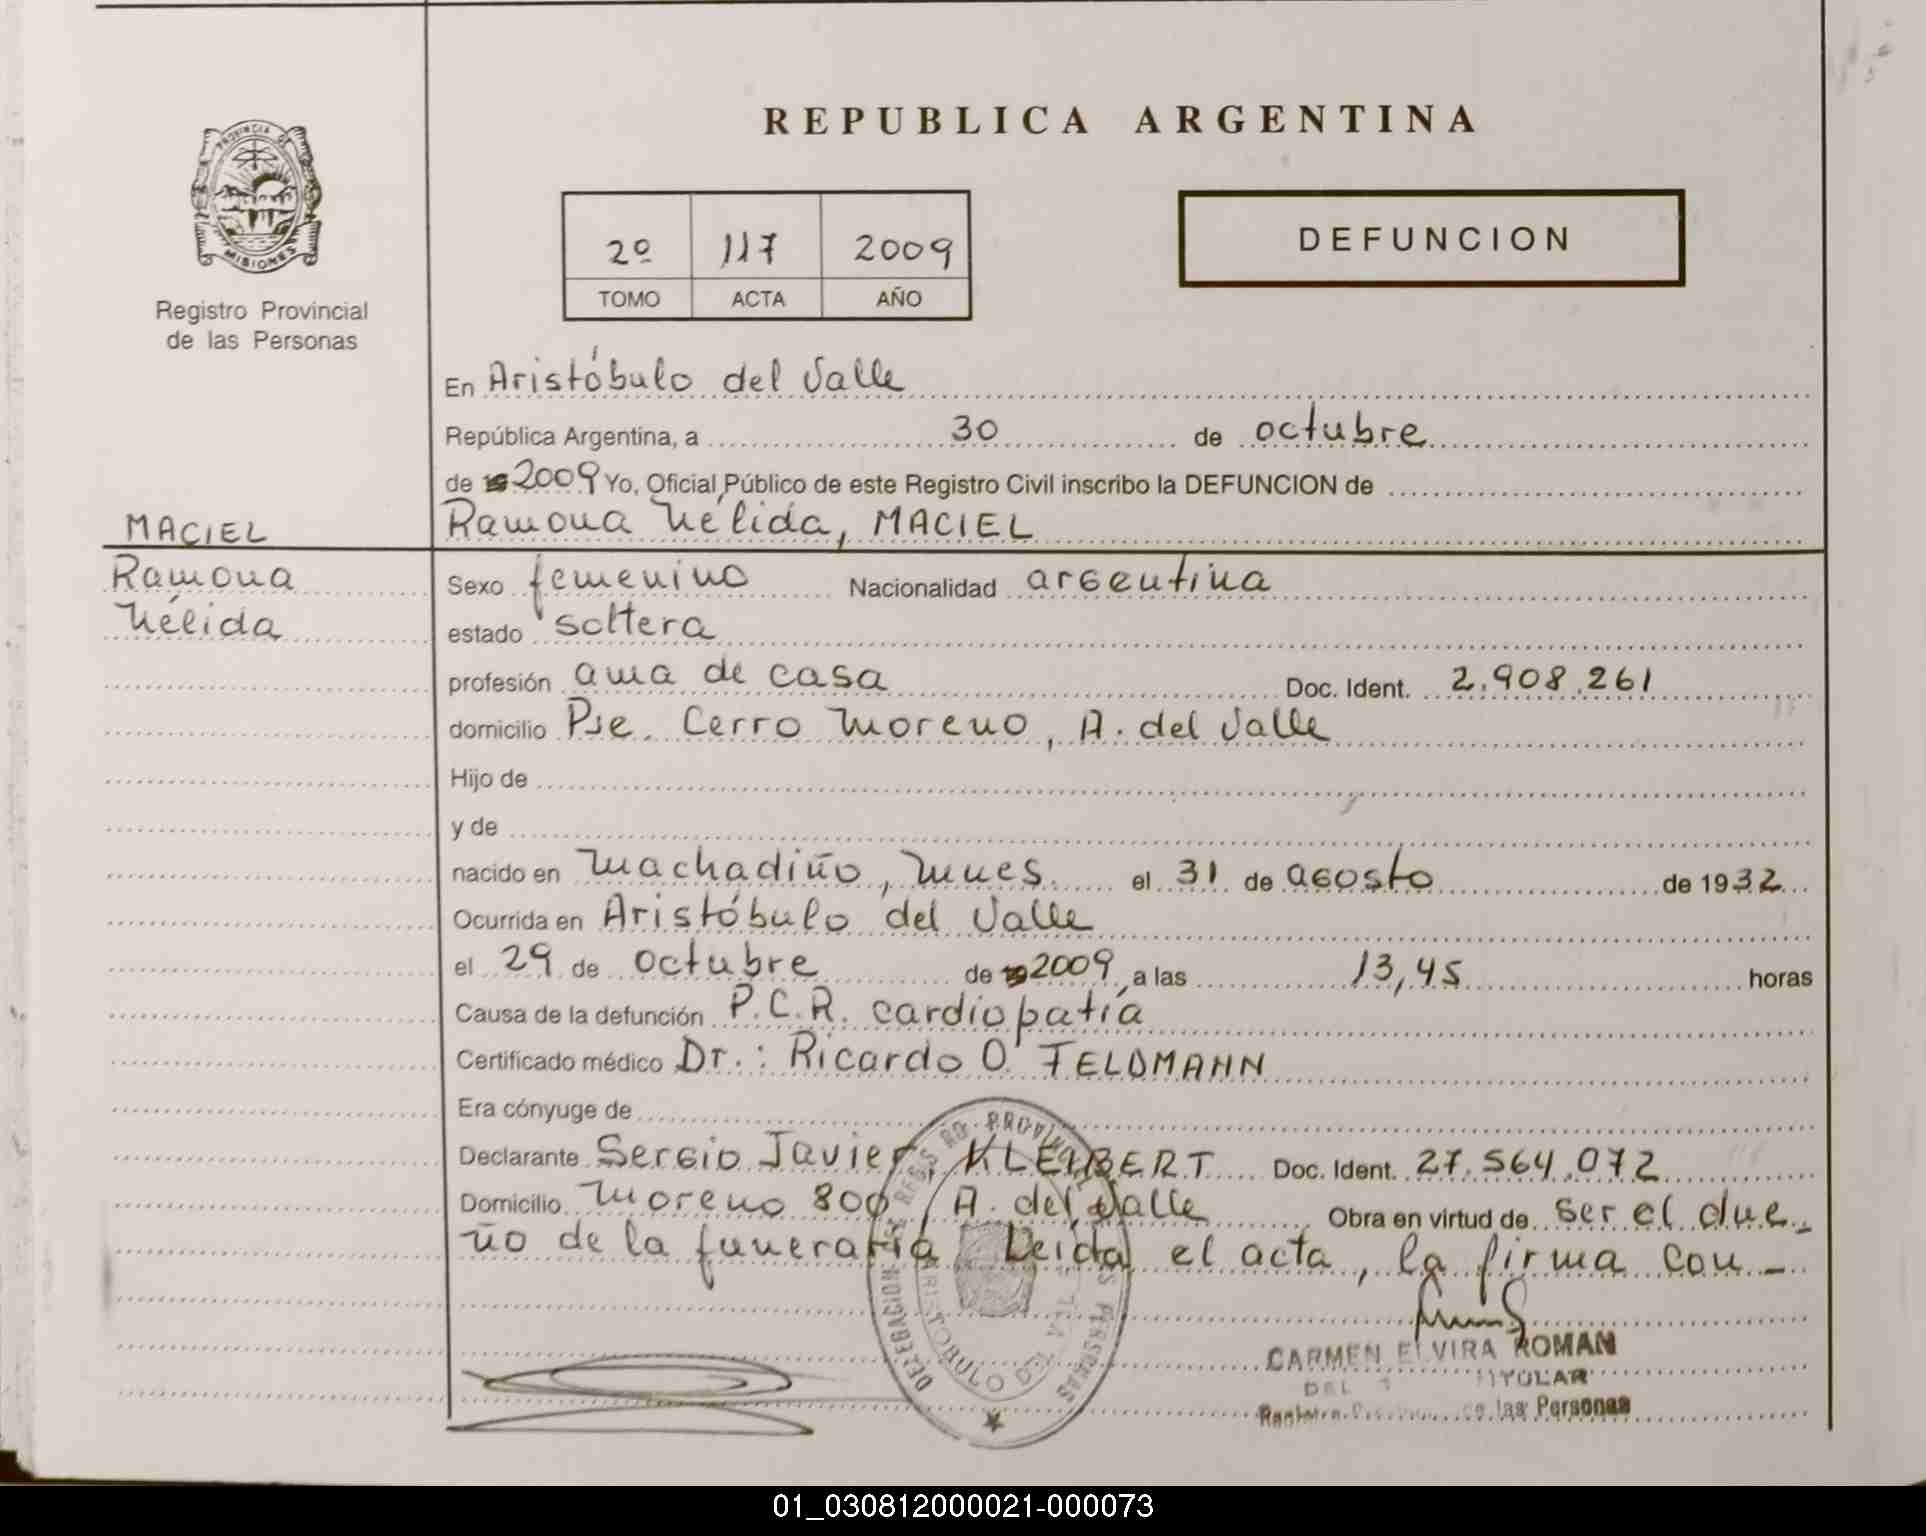 REPUBLICA ARGENTINA
PROVINCIA DE
MISIONES
Registro Provincial
de las Personas
2º 117 2009
TOMO ACTA AÑO
DEFUNCION
En Aristóbulo del Valle
República Argentina, a 30 de octubre
de 19 2009 Yo, Oficial Público de este Registro Civil inscribo la DEFUNCION de
MACIEL
Ramona Nélida, MACIEL
Ramona
Nélida
Sexo femenino Nacionalidad argentina
estado soltera
profesión ama de casa Doc. Ident. 2.908.261
domicilio Pje. Cerro Moreno, A. del Valle
Hijo de
y de
nacido en Machadiño, Mnes. el 31 de agosto de 1932
Ocurrida en Aristóbulo del Valle
el 29 de octubre de 19 2009, a las 13,45 horas
Causa de la defunción P.C.R. cardiopatía
Certificado médico Dr.: Ricardo O. FELDMANN
Era cónyuge de
Declarante Sergio Javier, KLEIBERT Doc. Ident. 27.564.072
Domicilio Moreno 800, A. del Valle Obra en virtud de ser el due_
ño de la funeraria Leida el acta, la firma con_
CARMEN ELVIRA ROMAN
TITULAR
de las Personas
DELEGACION REGISTRO PROVINCIAL PERSONAS
ARISTOBULO DEL VALLE
01_030812000021-000073